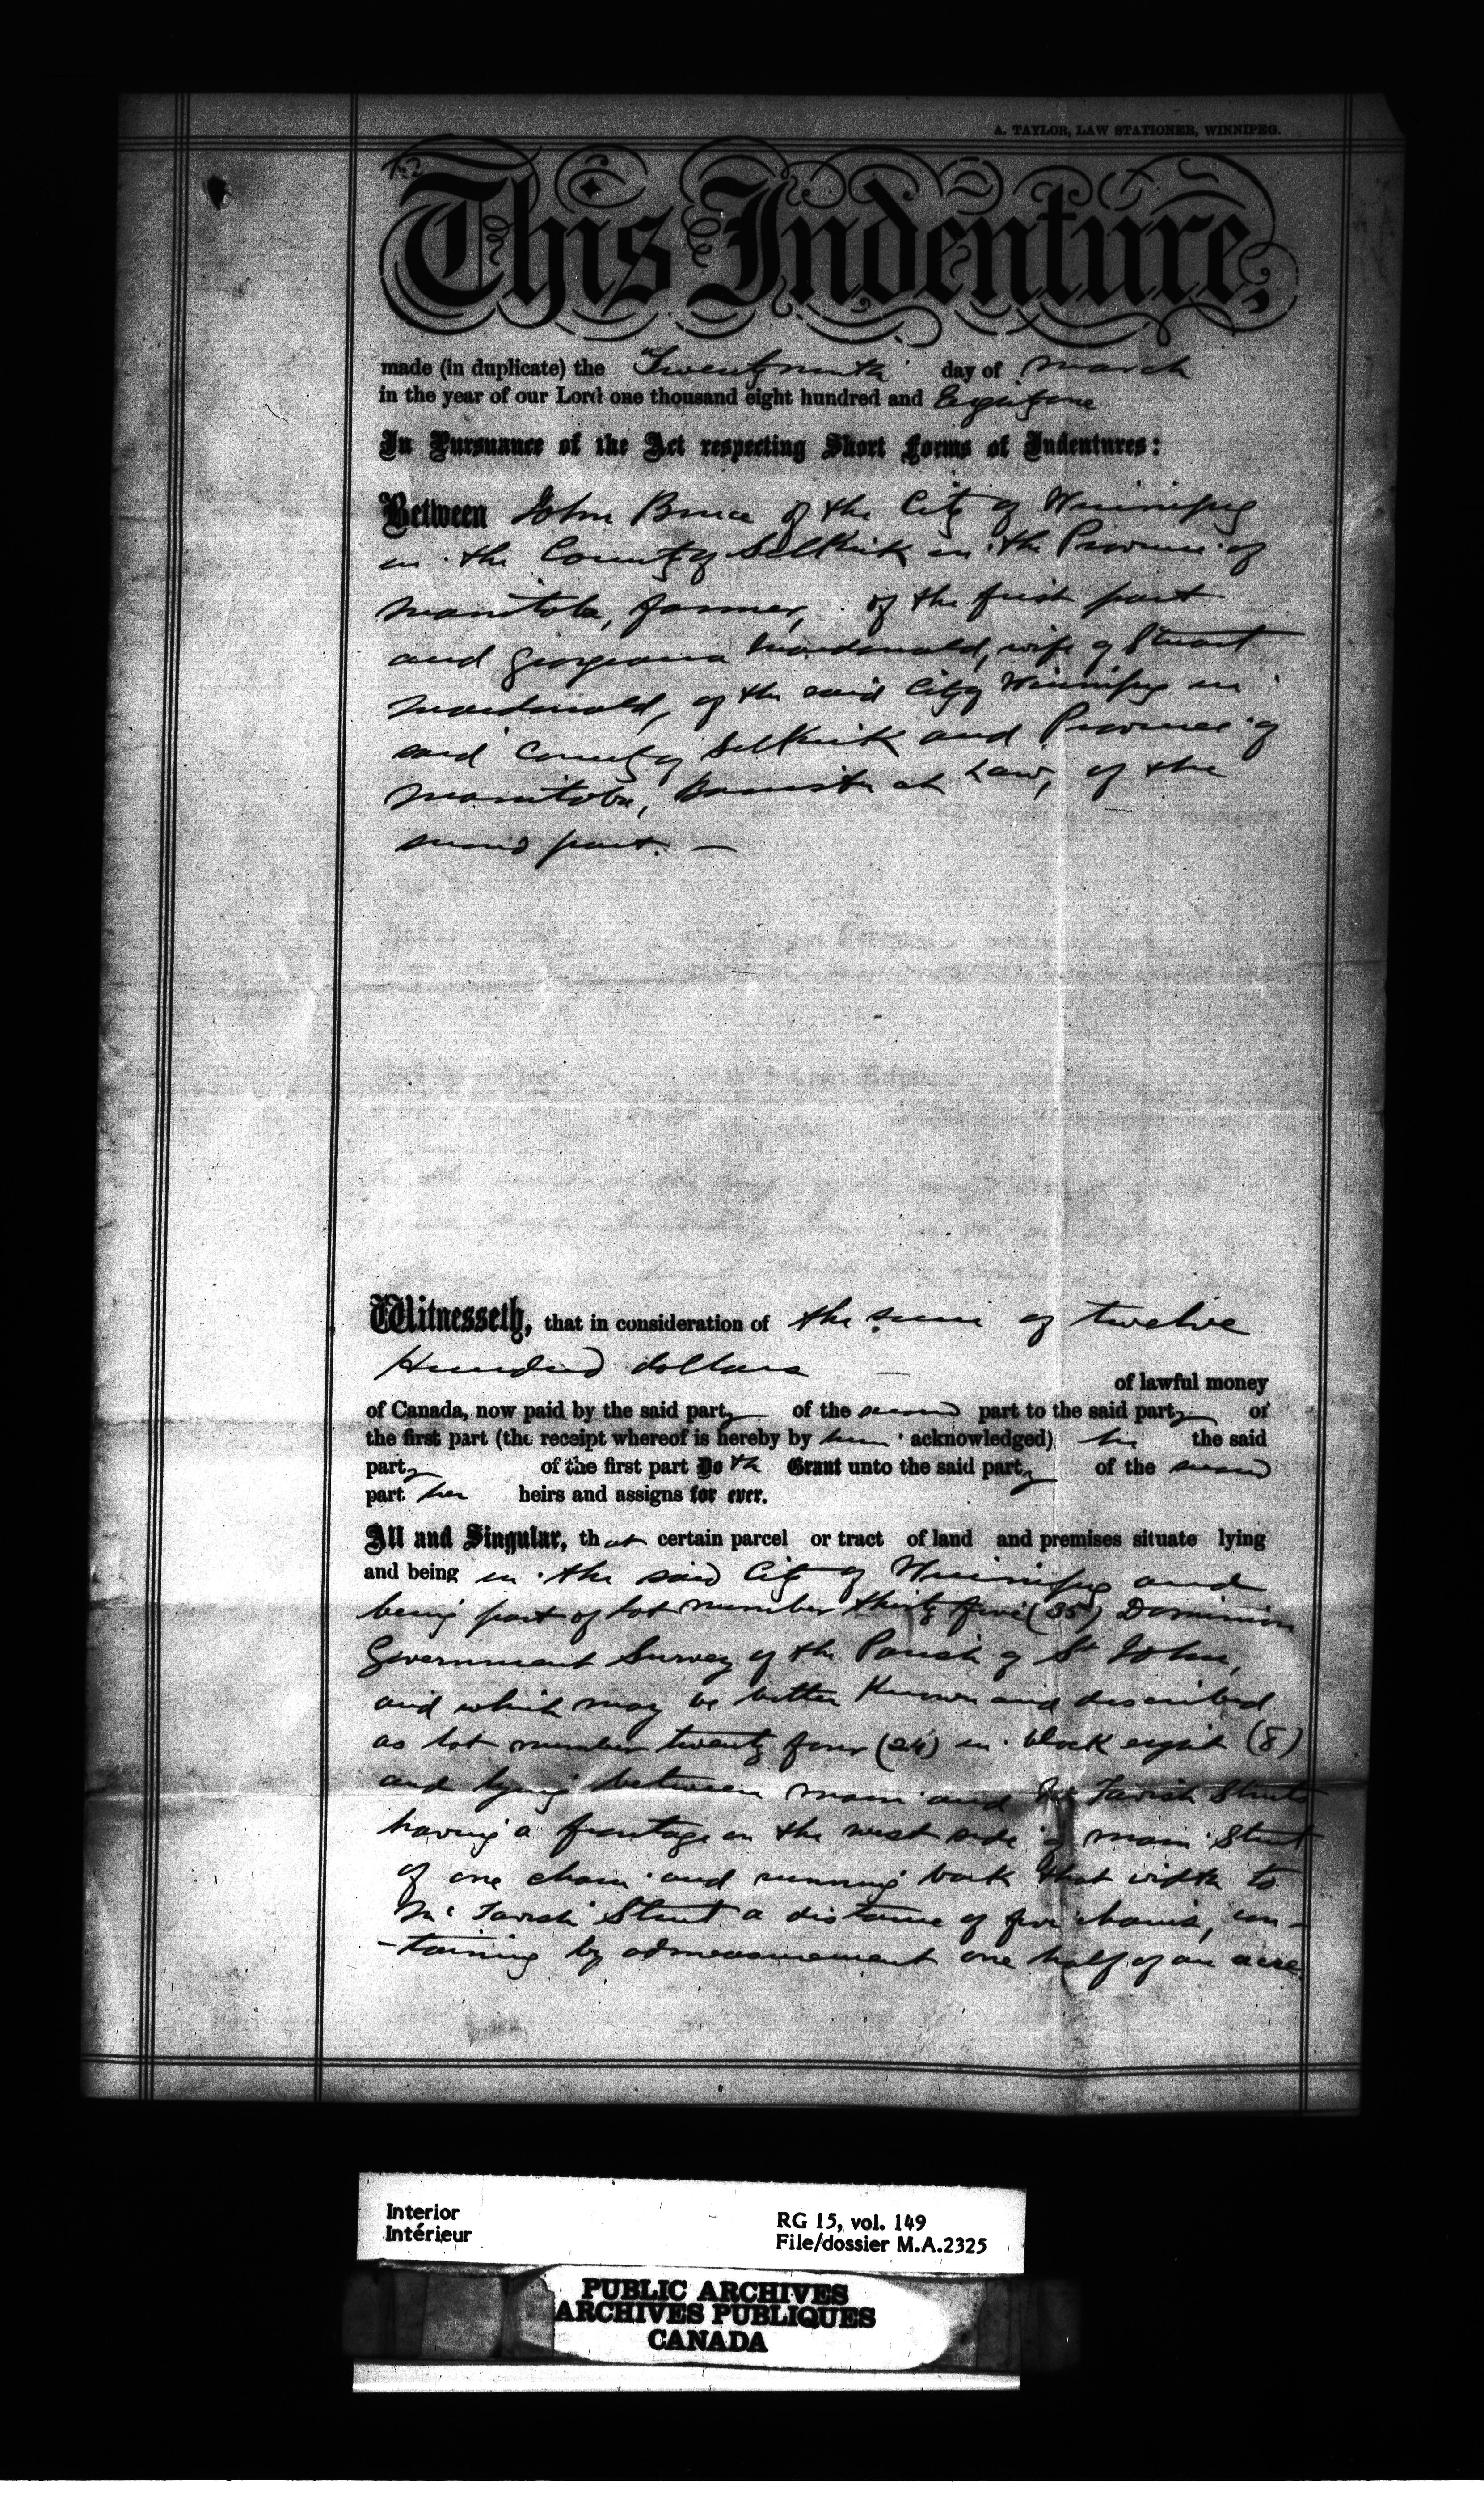 A. TAYLOR, LAW STATIONER, WINNIPEG.
This Indenture,
made (in duplicate) the Twenty ninth day of March
in the year of our Lord one thousand eight hundred and Eighty one
In Pursuance of the Act respecting Short Forms of Indentures:
Between John Bruce of the City of Winnipeg
in the County of Selkirk in the Province of
Manitoba, farmer, of the first part
and Georgeana Macdonald, wife of Stuart
Macdonald, of the said City of Winnipeg in
said County of Selkirk and Province of
Manitoba, Barrister at Law, of the
second part. —
Witnesseth, that in consideration of the sum of twelve
Hundred dollars —
of lawful money
of Canada, now paid by the said party of the second part to the said party of
the first part (the receipt whereof is hereby by him acknowledged) he the said
party of the first part Do th Grant unto the said party of the second
part her heirs and assigns for ever.
All and Singular, that certain parcel or tract of land and premises situate lying
and being in the said City of Winnipeg and
being part of lot number thirty five (35) Dominion
Government Survey of the Parish of St John,
and which may be better Known and described
as lot number twenty four (24) in block eight (8)
and lying between Main and McTavish Streets
having a frontage on the west side of Main Street
of one chain and running back that width to
McTavish Street a distance of five chains, con-
-taining by admeasurement one half of an acre.
Interior
Intérieur
RG 15, vol. 149
File/dossier M.A.2325
PUBLIC ARCHIVES
ARCHIVES PUBLIQUES
CANADA